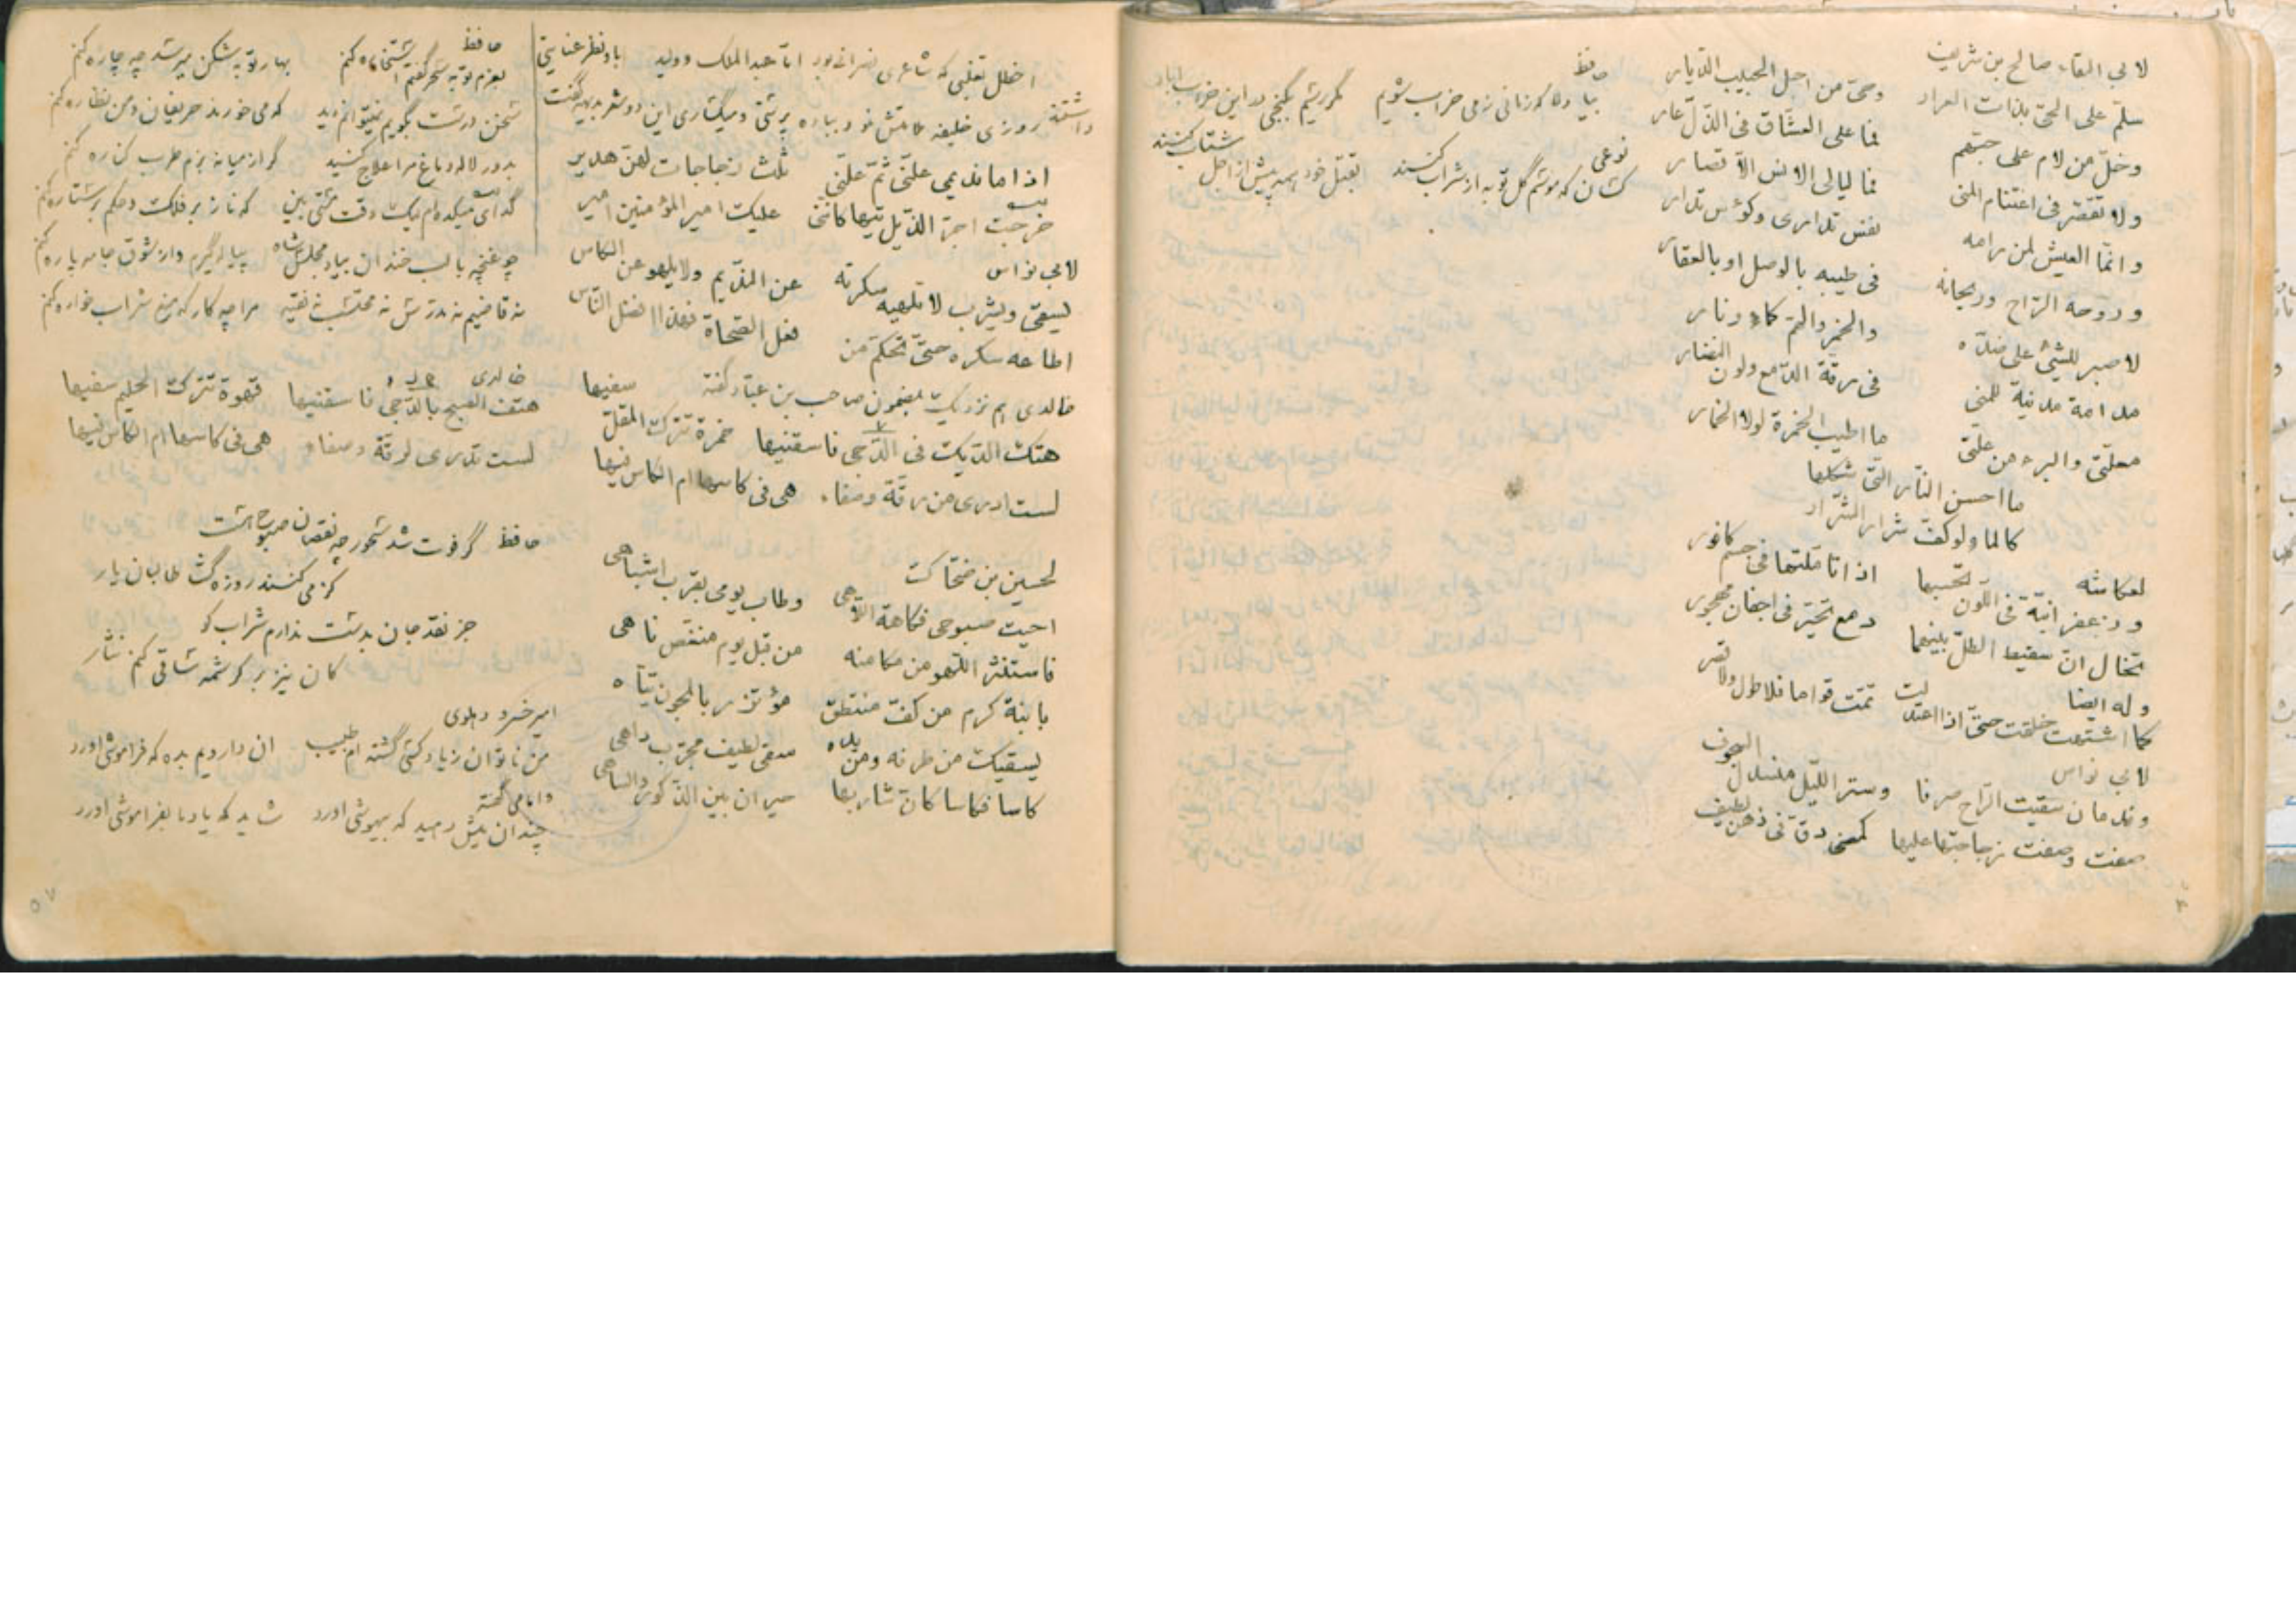 لابي البقاء صالح بن شريف
سلم على الحى بذات العرار وحىّ من اجل الحبيب الديار
وخلّ من لام على حبّهم فما على العشّاق فى الذلّ عار
ولا تقصّر فى اغتنام المنى فما ليالى الانس الاّ قصار
وانّما العيش لمن رامه نفس تدارى وكوٴس تدار
وروحه الرّاح وريحانه فى طيبه بالوصل او بالعقار
لا صبر للشئ على ضدّه والخمر والهمّ كماء ونار
مدامة مدنية للمنى فى رقّة الدّمع ولون النضار
معلّتى والبرء من علّتى ما اطيب الخمرة لولا الخمار
ما احسن النّار التّى شكلها
كالماء لو كفّ شرار الشرار
لعكاشه
وزعفرانيّة فى اللّون تحسبها اذا تاملتها فى جسم كافور
تخال انّ سقيط الطلّ بينهما دمع تحيّر فى اجفان مهجور
وله ايضا
كما اشتهت خلقت حتّى اذا اعتدلت تمّت قواما فلا طول ولا قصر
لابي نواس
وندمان سقيت الرّاح صرفا وستر اللّيل منسدل السجوف
صفت وصفت زجاجتها عليها كمعنى دقّ فى ذهن لطيف
حافظ
بيا بيا كه زمانى زمى خراب شويم مگر رسيم بگنجى در اين خراب آباد
نوعى
كسان كه موسم گل توبه از شراب كنند بقتل خود پيش از اجل شتاب كنند
اخطل تغلبى كه شاعرى نصرانى بود امّا عبد الملك و وليد باو نظر عنايتى
داشتند روزى خليفه ملامتش نمود بباده پرستى و ميگسارى اين دو شعر بديهه گفت
اذا ما نديمي علّنى ثمّ علّنى ثلث زجاجات لهنّ هدير
خرجت اجرّ الذّيل تيها كانّنى عليك امير المؤمنين امير
لابي نواس
يسقى ويشرب لا تلهيه سكرته عن النّديم ولا يلهو عن الكاس
اطاعه سكره حتّى تحكّم من فعل الصّحاة فهذا افضل النّاس
خالدى هم نزديك بمضمون صاحب بن عبّاد گفته
هتك الدّيك فى الدّجى فاسقنيها خمرة تترك المقلّ سفيها
لست ادرى من رقّة وصفاء هى فى كاسها ام الكاس فيها
لحسين بن ضحّاك
احيت صبوحى فكاهة اللاّهى وطاب يومى بقرب اشباهى
فاستنثر اللّهو من مكامنه من قبل يوم منغّص ناهى
بابنة كرم من كفّ منتطق مؤتزر بالمجون تيّاه
يسقيك من طرفه ومن يده سقى لطيف مجرّب داهى
كاسا فكاسا كانّ شاربها حيران بين الذّكور والساهى
حافظ
بعزم توبه سحر گفتم استخاره كنم بهار توبه شكن ميرسد چه چاره كنم
سخن درست بگويم نميتوانم ديد كه مى خورند حريفان و من نظاره كنم
بدور لاله دماغ مرا علاج كنيد گر از ميانه بزم طرب كناره كنم
گداى ميكده ام ليك وقت مستى بين كه ناز بر فلك و حكم بر ستاره كنم
چو غنچه با لب خندان بياد مجلس شاه پياله گيرم و از شوق جامه پاره كنم
نه قاضيم نه مدرّس نه محتسب نه فقيه مرا چه كار كه منع شراب خواره كنم
خالدى
هتف الصبح بالدّجى فاسقنيها قهوة تترك الحليم سفيها
لست تدرى لرقّة وصفاء هى فى كاسها ام الكاس فيها
حافظ
گر فوت شد سحور چه نقصان صبوح هست
كز مى كنند روزه گشا طالبان يار
جز نقد جان بدست ندارم شراب كو
كان نيز بر كرشمه ساقى كنم نثار
امير خسرو دهلوى
من ناتوان زياد كسى گشته ام طبيب آن دارويم بده كه فراموشى آورد
چندان بيش دهيد كه بيهوشى آورد شايد كه ياد ما بفراموشى آورد
٥٧